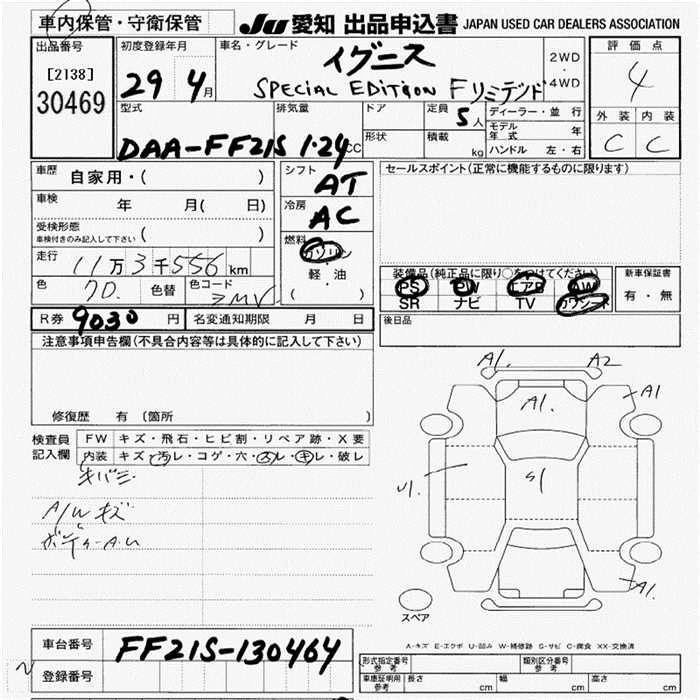 車内保管・守衛保管 JU 愛知 出品申込書 JAPAN USED CAR DEALERS ASSOCIATION
出品番号 初度登録年月 車名・グレード 評価点
[2138] 29 4月 イグニス 2WD
30469 SPECIAL EDITION Fリミテッド ・ 4
4WD
型式 排気量 ドア 定員 5人 ディーラー・並行 外装 内装
モデル年式 年
DAA-FF21S 1.24cc 形状 積載 kg ハンドル 左・右 C C
車歴 自家用・( ) シフト AT セールスポイント(正常に機能するものに限ります)
車検 年 月( 日) 冷房 AC
受検形態
車検付きのみ記入して下さい ( ) 燃料
走行 11万3千556km ガソリン
・
軽・油
( )
装備品(純正品に限り○をつけてください) 新車保証書
色 70. 色替 色コード PS PW エアB AW 有・無
SR ナビ TV カワシート
R券 9030円 名変通知期限 月 日 後日品
注意事項申告欄(不具合内容等は具体的に記入して下さい)
修復歴 有 (箇所 )
検査員記入欄 FW キズ・飛石・ヒビ割・リペア跡・X要
内装 キズ・汚レ・コゲ・穴・スレ・キレ・破レ
キバミ
A/W キズ
ボディ A.U
A1. A2
A1. A1
U1. S1
A1.
スペア
A-キズ E-エクボ U-凹み W-補修跡 S-サビ C-腐食 XX-交換済
車台番号 FF21S-130464
登録番号
型式指定番号 参考 類別区分番号 参考
車庫証明用 参考 長さ cm 幅 cm 高さ cm